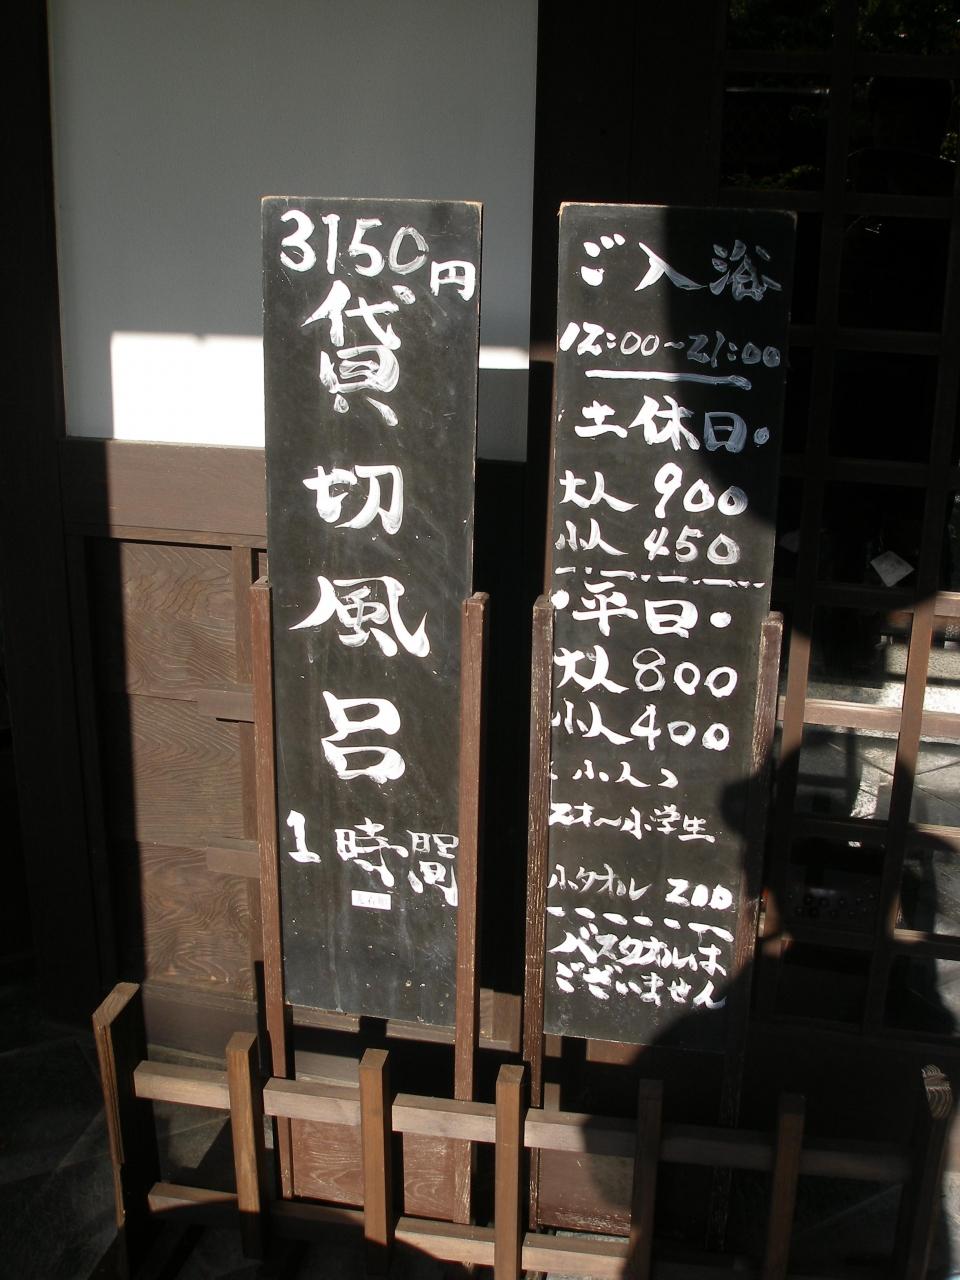 3150円
貸切風呂
1時間
ご入浴
12:00~21:00
土休日・
大人 900
小人 450
・平日・
大人 800
小人 400
(小人)
2才~小学生
小タオル 200
バスタオルは
ございません